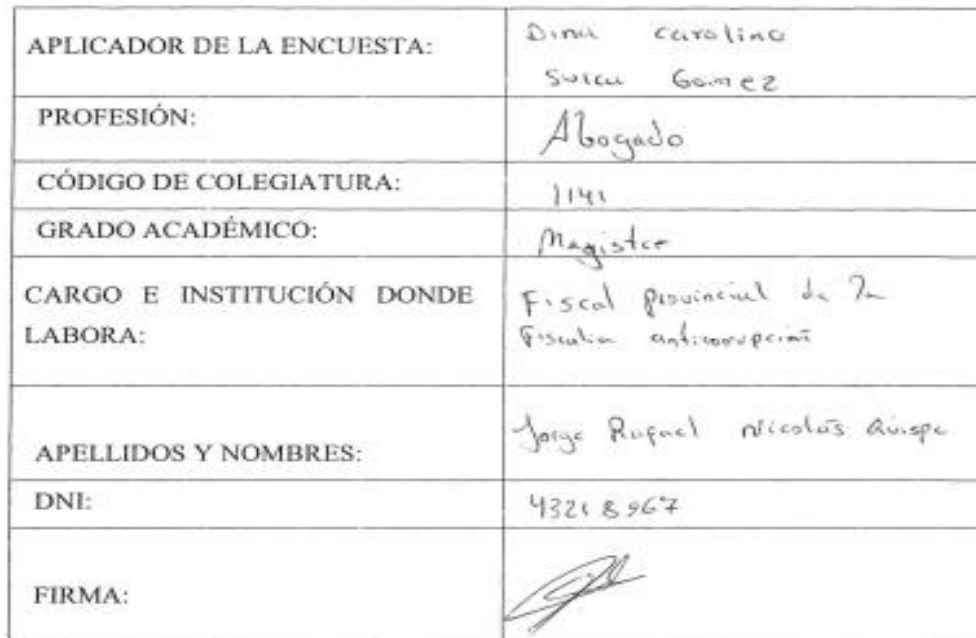 APLICADOR DE LA ENCUESTA:
Dina Carolina
Gomez
PROFESIÓN:
Abogado
CÓDIGO DE COLEGIATURA:
1141
GRADO ACADÉMICO:
Magister
CARGO E INSTITUCIÓN DONDE
LABORA:
Fiscal provincial de la
Fiscalia anticorrupción
APELLIDOS Y NOMBRES:
Jorge Rafael Nicolás Quispe
DNI:
43218967
FIRMA: